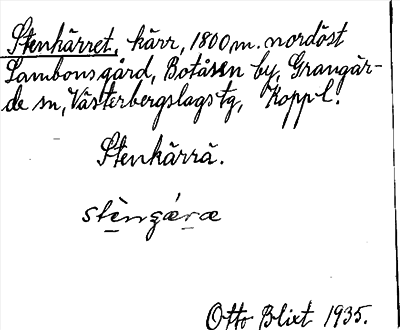 Stenkärret, kärr, 1800 m. nordöst
Lambonsgård, Botåsen by, Grangär-
de sn, Västerbergslags tg, Kopp l.
Stenkärrä.
stèngǽræ
Otto Blixt 1935.